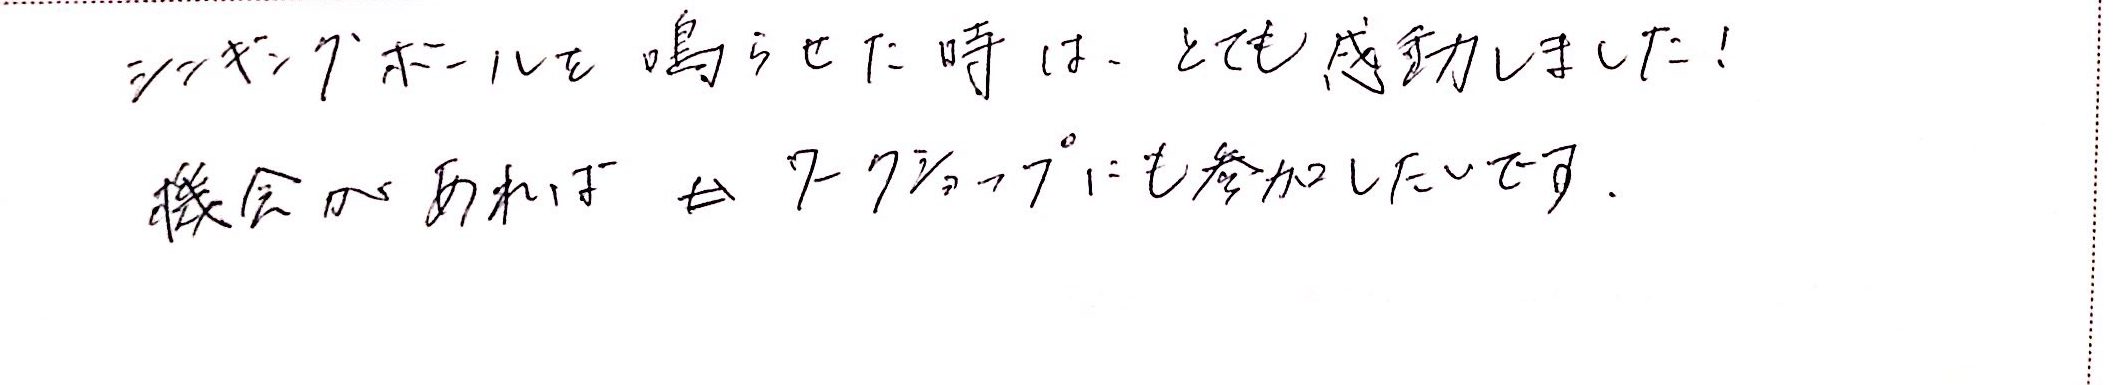 シンギングボールを鳴らせた時は、とても感動しました!
機会があれば ワークショップにも参加したいです.